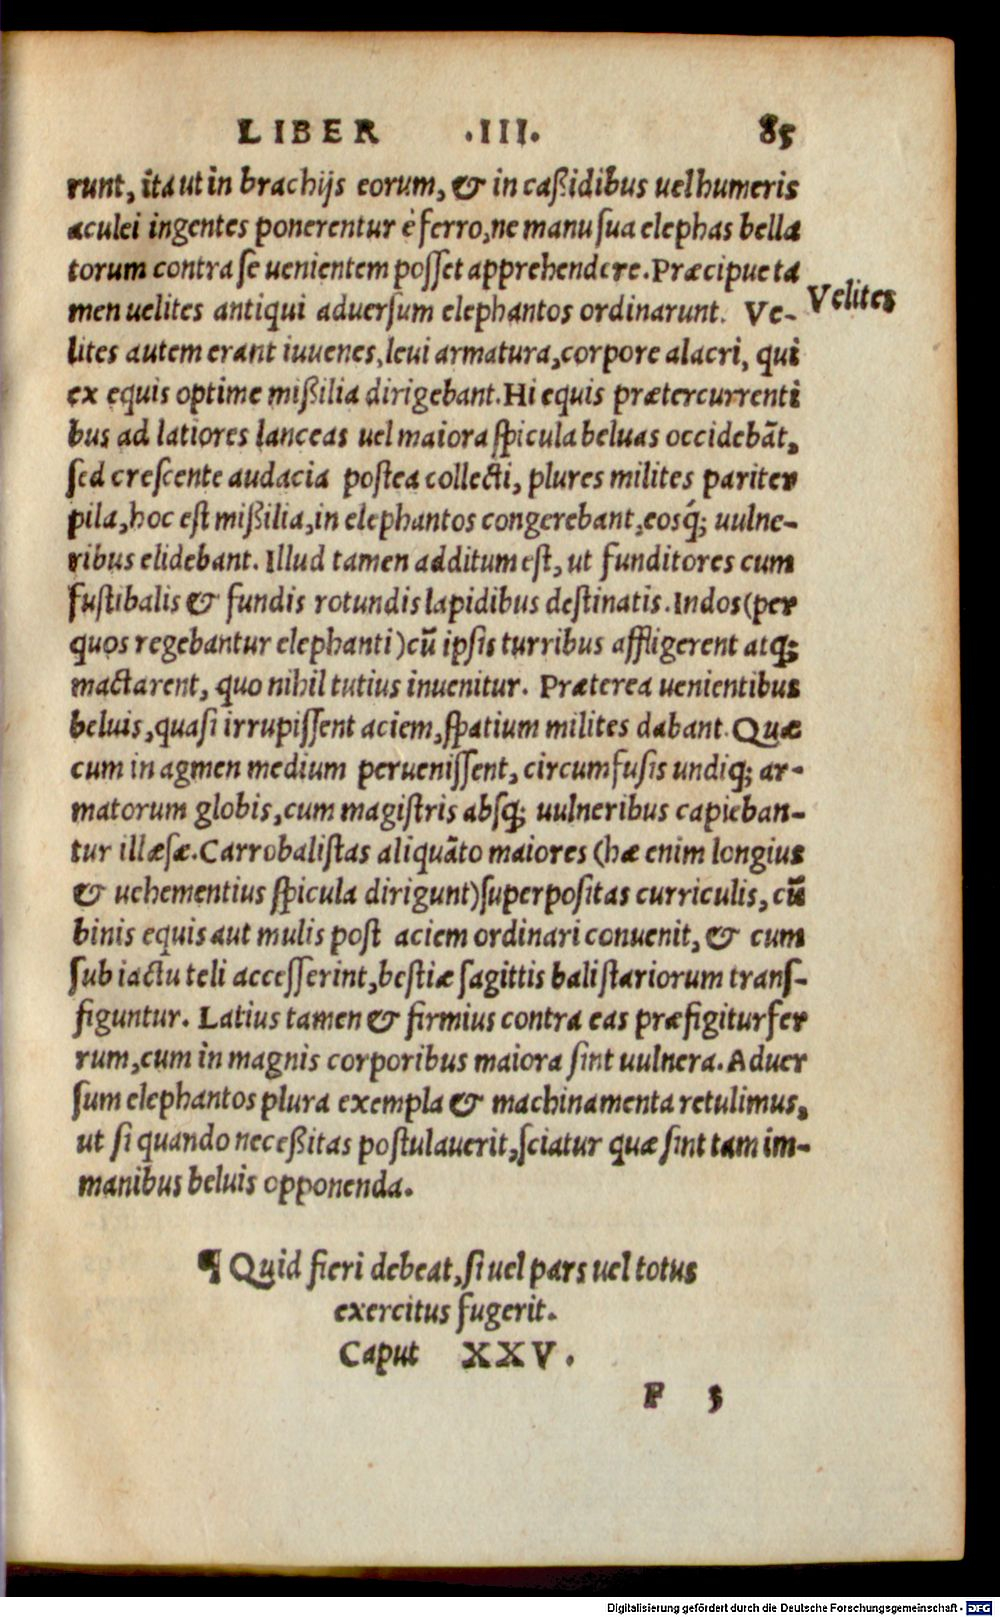 LIBER .III. 85
runt, ita ut in brachijs eorum, & in caßidibus uel humeris
aculei ingentes ponerentur è ferro, ne manu ſua elephas bella
torum contra ſe uenientem poſſet apprehendere. Præcipue ta
men uelites antiqui aduerſum elephantos ordinarunt. Ve-
Velites
lites autem erant iuuenes, leui armatura, corpore alacri, qui
ex equis optime mißilia dirigebant. Hi equis prætercurrenti
bus ad latiores lanceas uel maiora ſpicula beluas occidebāt,
ſed creſcente audacia poſtea collecti, plures milites pariter
pila, hoc eſt mißilia, in elephantos congerebant, eosq́; uulne-
ribus elidebant. Illud tamen additum eſt, ut funditores cum
fuſtibalis & fundis rotundis lapidibus deſtinatis. Indos (per
quos regebantur elephanti) cū ipſis turribus affligerent atq;
mactarent, quo nihil tutius inuenitur. Præterea uenientibus
beluis, quaſi irrupiſſent aciem, ſpatium milites dabant. Quæ
cum in agmen medium perueniſſent, circumfuſis undiq; ar-
matorum globis, cum magiſtris absq; uulneribus capieban-
tur illæſæ. Carrobaliſtas aliquāto maiores (hæ enim longius
& uehementius ſpicula dirigunt) ſuperpoſitas curriculis, cū
binis equis aut mulis poſt aciem ordinari conuenit, & cum
ſub iactu teli acceſſerint, beſtiæ ſagittis baliſtariorum tranſ-
figuntur. Latius tamen & firmius contra eas præfigitur fer
rum, cum in magnis corporibus maiora ſint uulnera. Aduer
ſum elephantos plura exempla & machinamenta retulimus,
ut ſi quando neceßitas poſtulauerit, ſciatur quæ ſint tam im-
manibus beluis opponenda.
¶ Quid fieri debeat, ſi uel pars uel totus
exercitus fugerit.
Caput XXV.
F 5
Digitalisierung gefördert durch die Deutsche Forschungsgemeinschaft - DFG